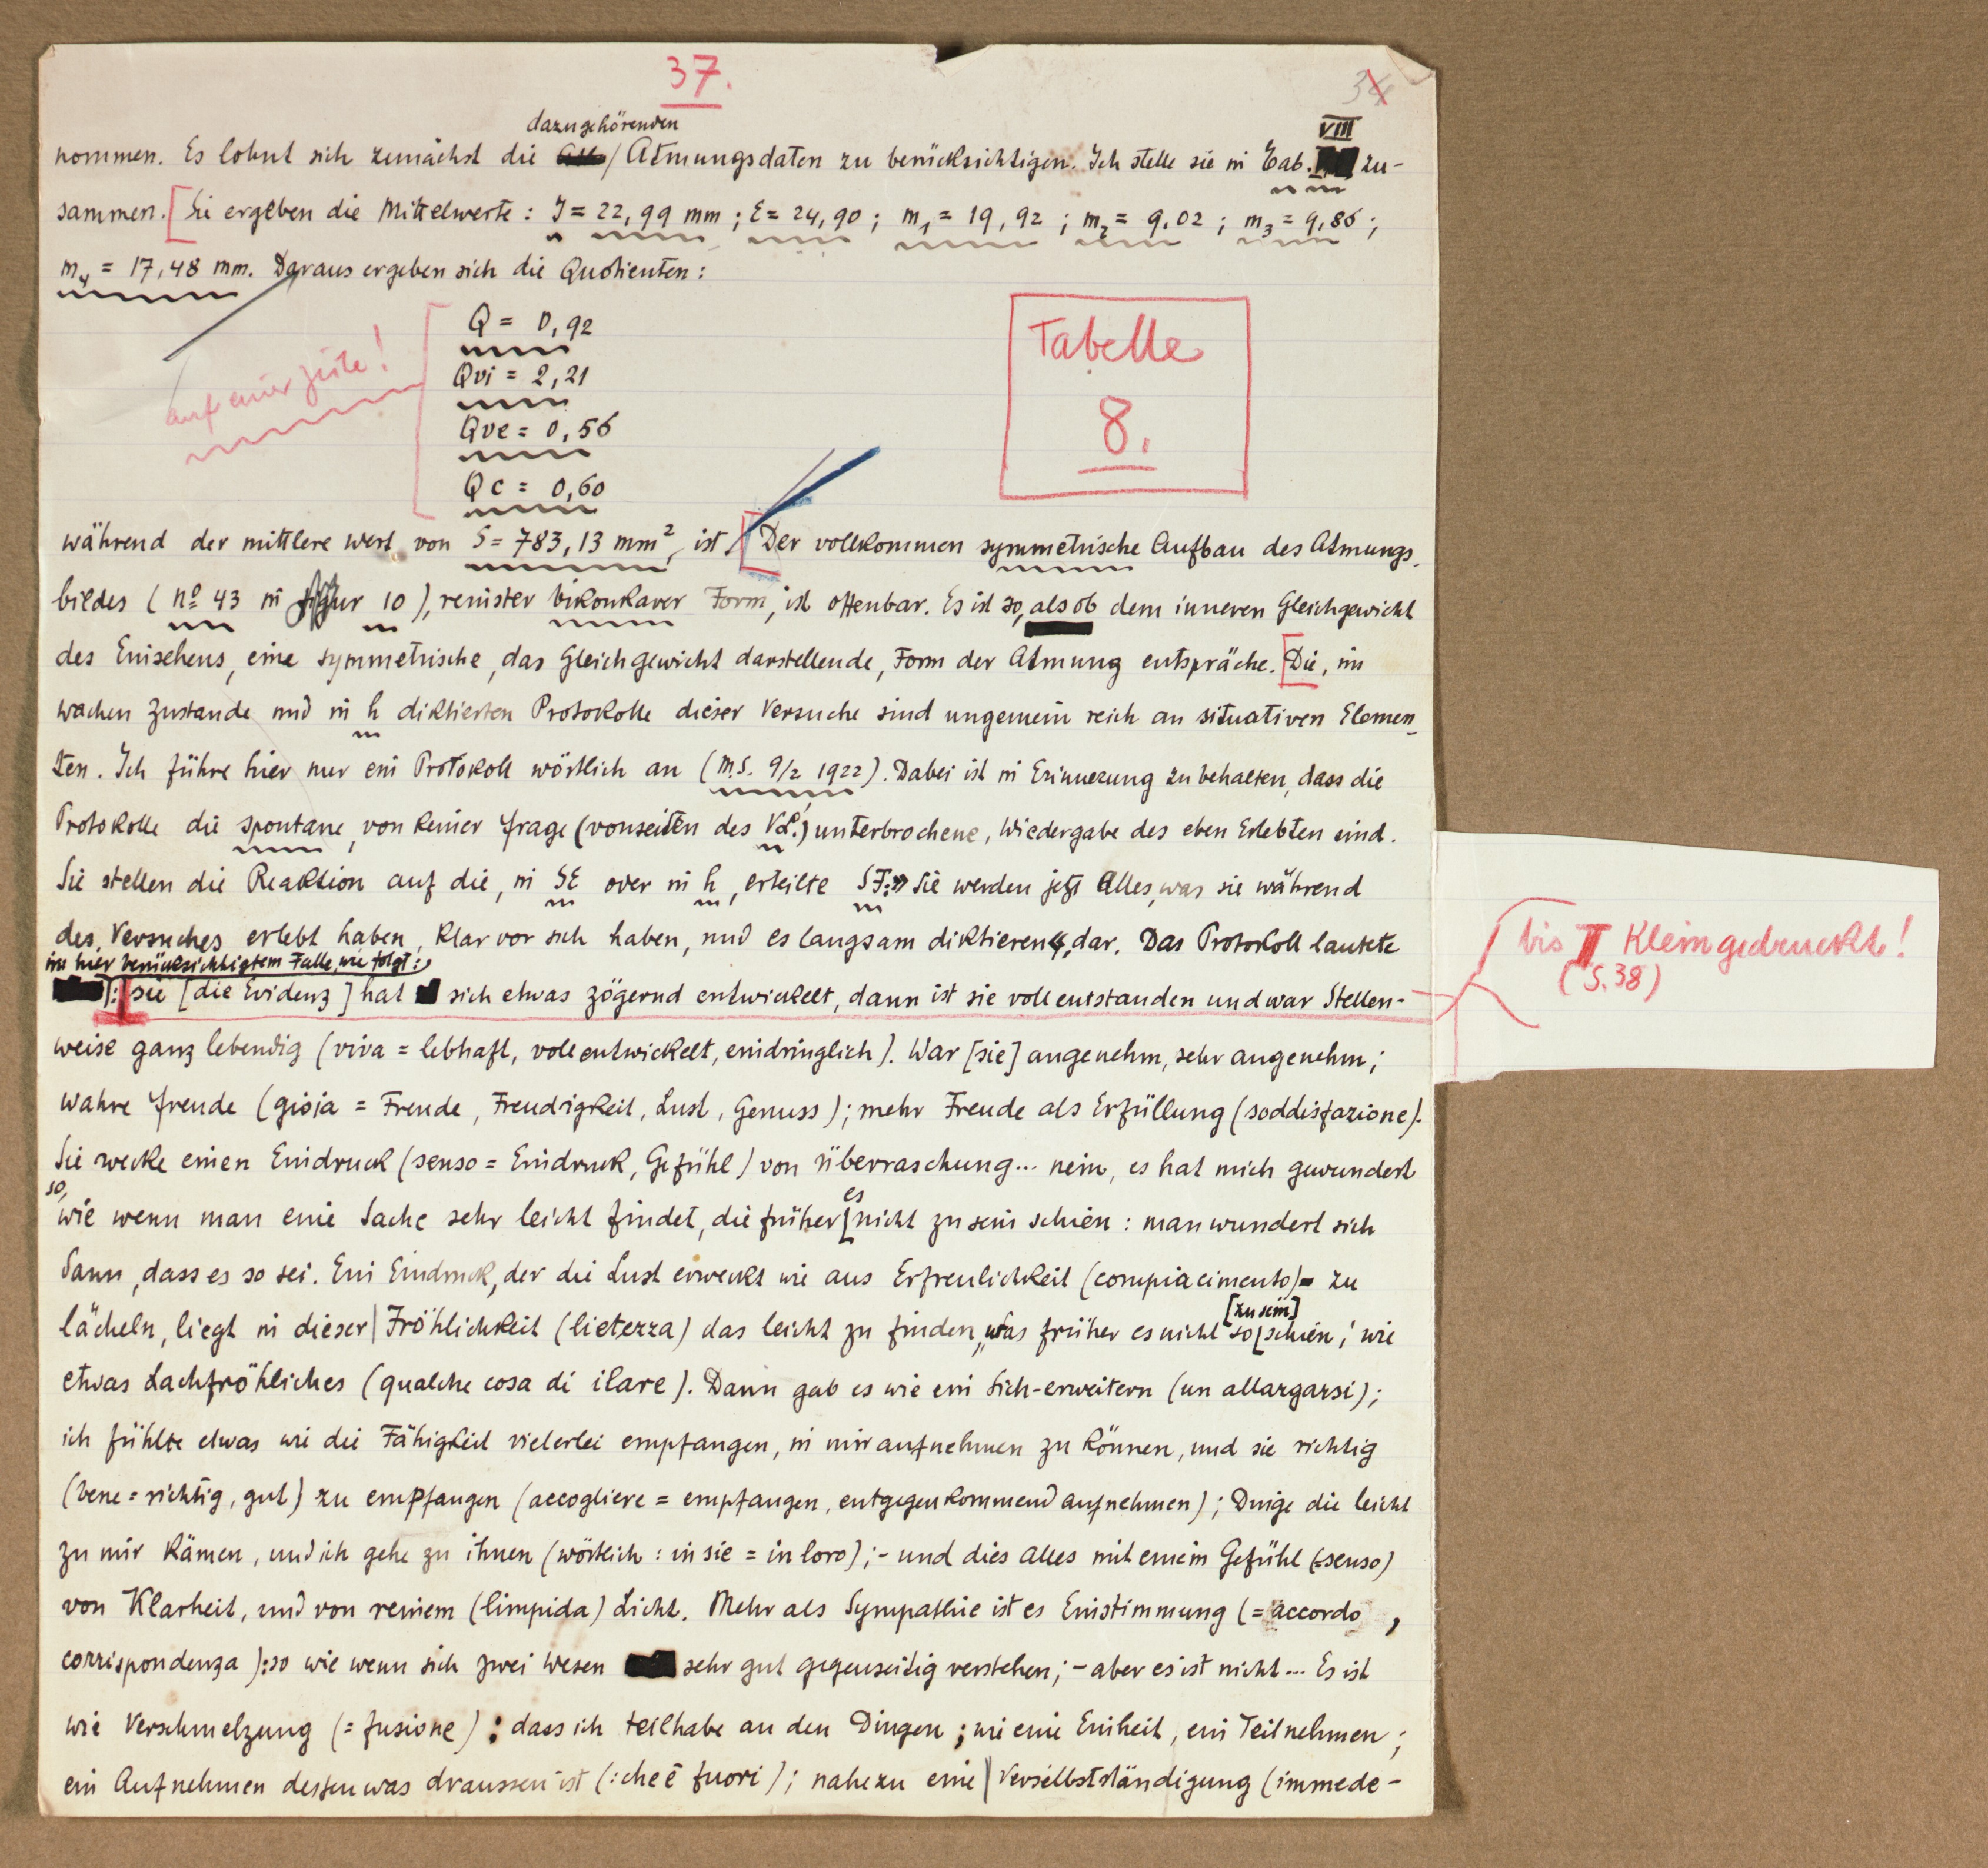 37.
34
dazugehörenden
VIII
nommen. Es lohnt sich zunächst die Atmungsdaten zu berücksichtigen. Ich stelle sie in Tab. zu-
sammen. [Sie ergeben die Mittelwerte: J = 22,99 mm; E = 24,90; m₁ = 19,92; m₂ = 9.02; m₃ = 9,86;
m₄ = 17,48 mm. Daraus ergeben sich die Quotienten:
Q = 0,92
Qvi = 2,21
Qve = 0,56
Qc = 0,60
auf einer Zeile!
Tabelle
8.
während der mittlere Wert von S = 783,13 mm², ist. [Der vollkommen symmetrische Aufbau des Atmungs-
bildes (nº 43 in Figur 10), reinster bikonkaver Form, ist offenbar. Es ist so, als ob dem inneren Gleichgewicht
des Einsehens, eine symmetrische, das Gleichgewicht darstellende, Form der Atmung entspräche. [Die, im
wachen Zustande und in h diktierten Protokolle dieser Versuche sind ungemein reich an situativen Elemen-
ten. Ich führe hier nur ein Protokoll wörtlich an (M.S. 9/2 1922). Dabei ist in Erinnerung zu behalten, dass die
Protokolle die spontane, von keiner Frage (vonseiten des VL.) unterbrochene, Wiedergabe des eben Erlebten sind.
Sie stellen die Reaktion auf die, in SE oder in h, erteilte SF: » Sie werden jetzt Alles, was sie während
des Versuches erlebt haben, klar vor sich haben, und es langsam diktieren«, dar. Das Protokoll lautete
im hier berücksichtigtem Falle, wie folgt:
: [sie [die Evidenz] hat sich etwas zögernd entwickelt, dann ist sie voll entstanden und war Stellen-
bis I Kleingedruckt!
(S.38)
weise ganz lebendig (viva = lebhaft, voll entwickelt, eindringlich). War [sie] angenehm, sehr angenehm;
wahre Freude (gioja = Freude, Freudigkeit, Lust, Genuss); mehr Freude als Erfüllung (soddisfazione).
Sie wecke einen Eindruck (senso = Eindruck, Gefühl) von Überraschung... nein, es hat mich gewundert
so,
es
wie wenn man eine Sache sehr leicht findet, die früher nicht zu sein schien: man wundert sich
dann, dass es so sei. Ein Eindruck, der die Lust erweckt wie aus Erfreulichkeit (compiacimento) zu
[zu sein]
lächeln, liegt in dieser Fröhlichkeit (lietezza) das leicht zu finden, was früher es nicht so schien; wie
etwas Lachfröhliches (qualche cosa di ilare). Dann gab es wie ein Sich-erweitern (un allargarsi);
ich fühlte etwas wie die Fähigkeit vielerlei empfangen, in mir aufnehmen zu können, und sie richtig
(bene = richtig, gut) zu empfangen (accogliere = empfangen, entgegenkommend aufnehmen); Dinge die leicht
zu mir kämen, und ich gehe zu ihnen (wörtlich: in sie = in loro); - und dies alles mit einem Gefühl (senso)
von Klarheit, und von reinem (limpida) Licht. Mehr als Sympathie ist es Einstimmung (= accordo,
corrispondenza): so wie wenn sich zwei Wesen sehr gut gegenseitig verstehen; - aber es ist nicht... Es ist
wie Verschmelzung (= fusione): dass ich teilhabe an den Dingen; wie eine Einheit, ein Teilnehmen;
ein Aufnehmen dessen was draussen ist (: che è fuori); nahezu eine Verselbstständigung (immede-